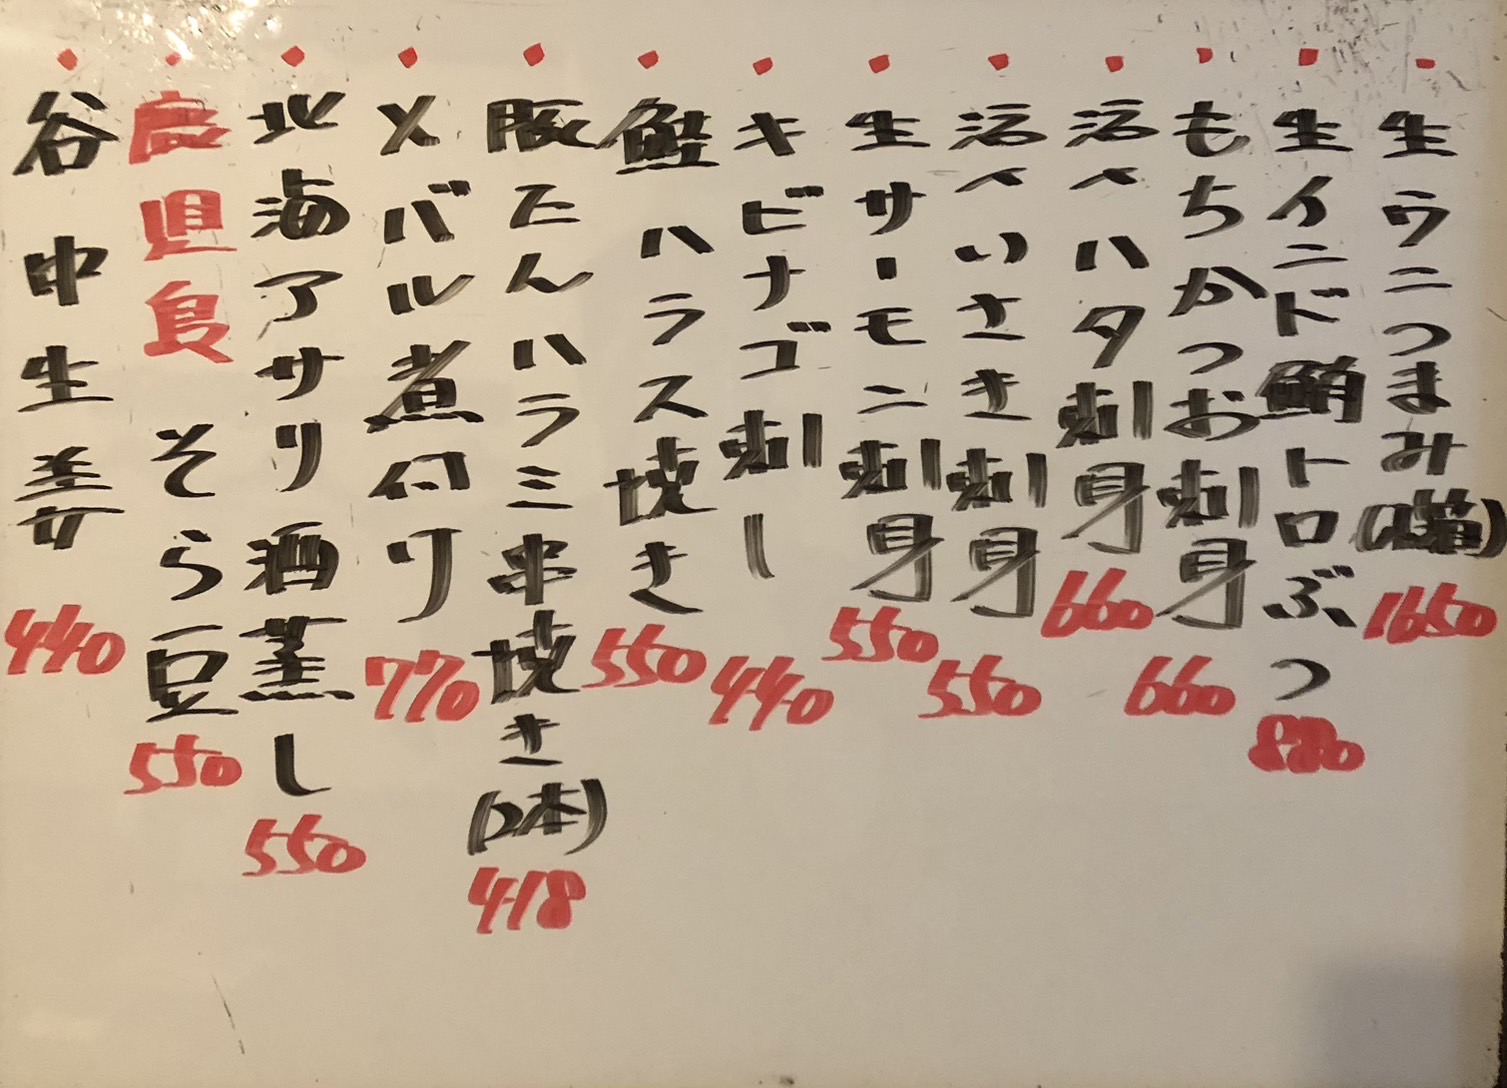 生ウニつまみ(1箱)1650
生インド鮪トロぶつ880
もちかつお刺身660
活〆ハタ刺身660
活〆いさき刺身550
生サーモン刺身550
キビナゴ刺し440
鮭ハラス焼き550
豚たんハラミ串焼き(2本)418
メバル煮付け770
北海アサリ酒蒸し550
鹿児島そら豆550
谷中生姜440